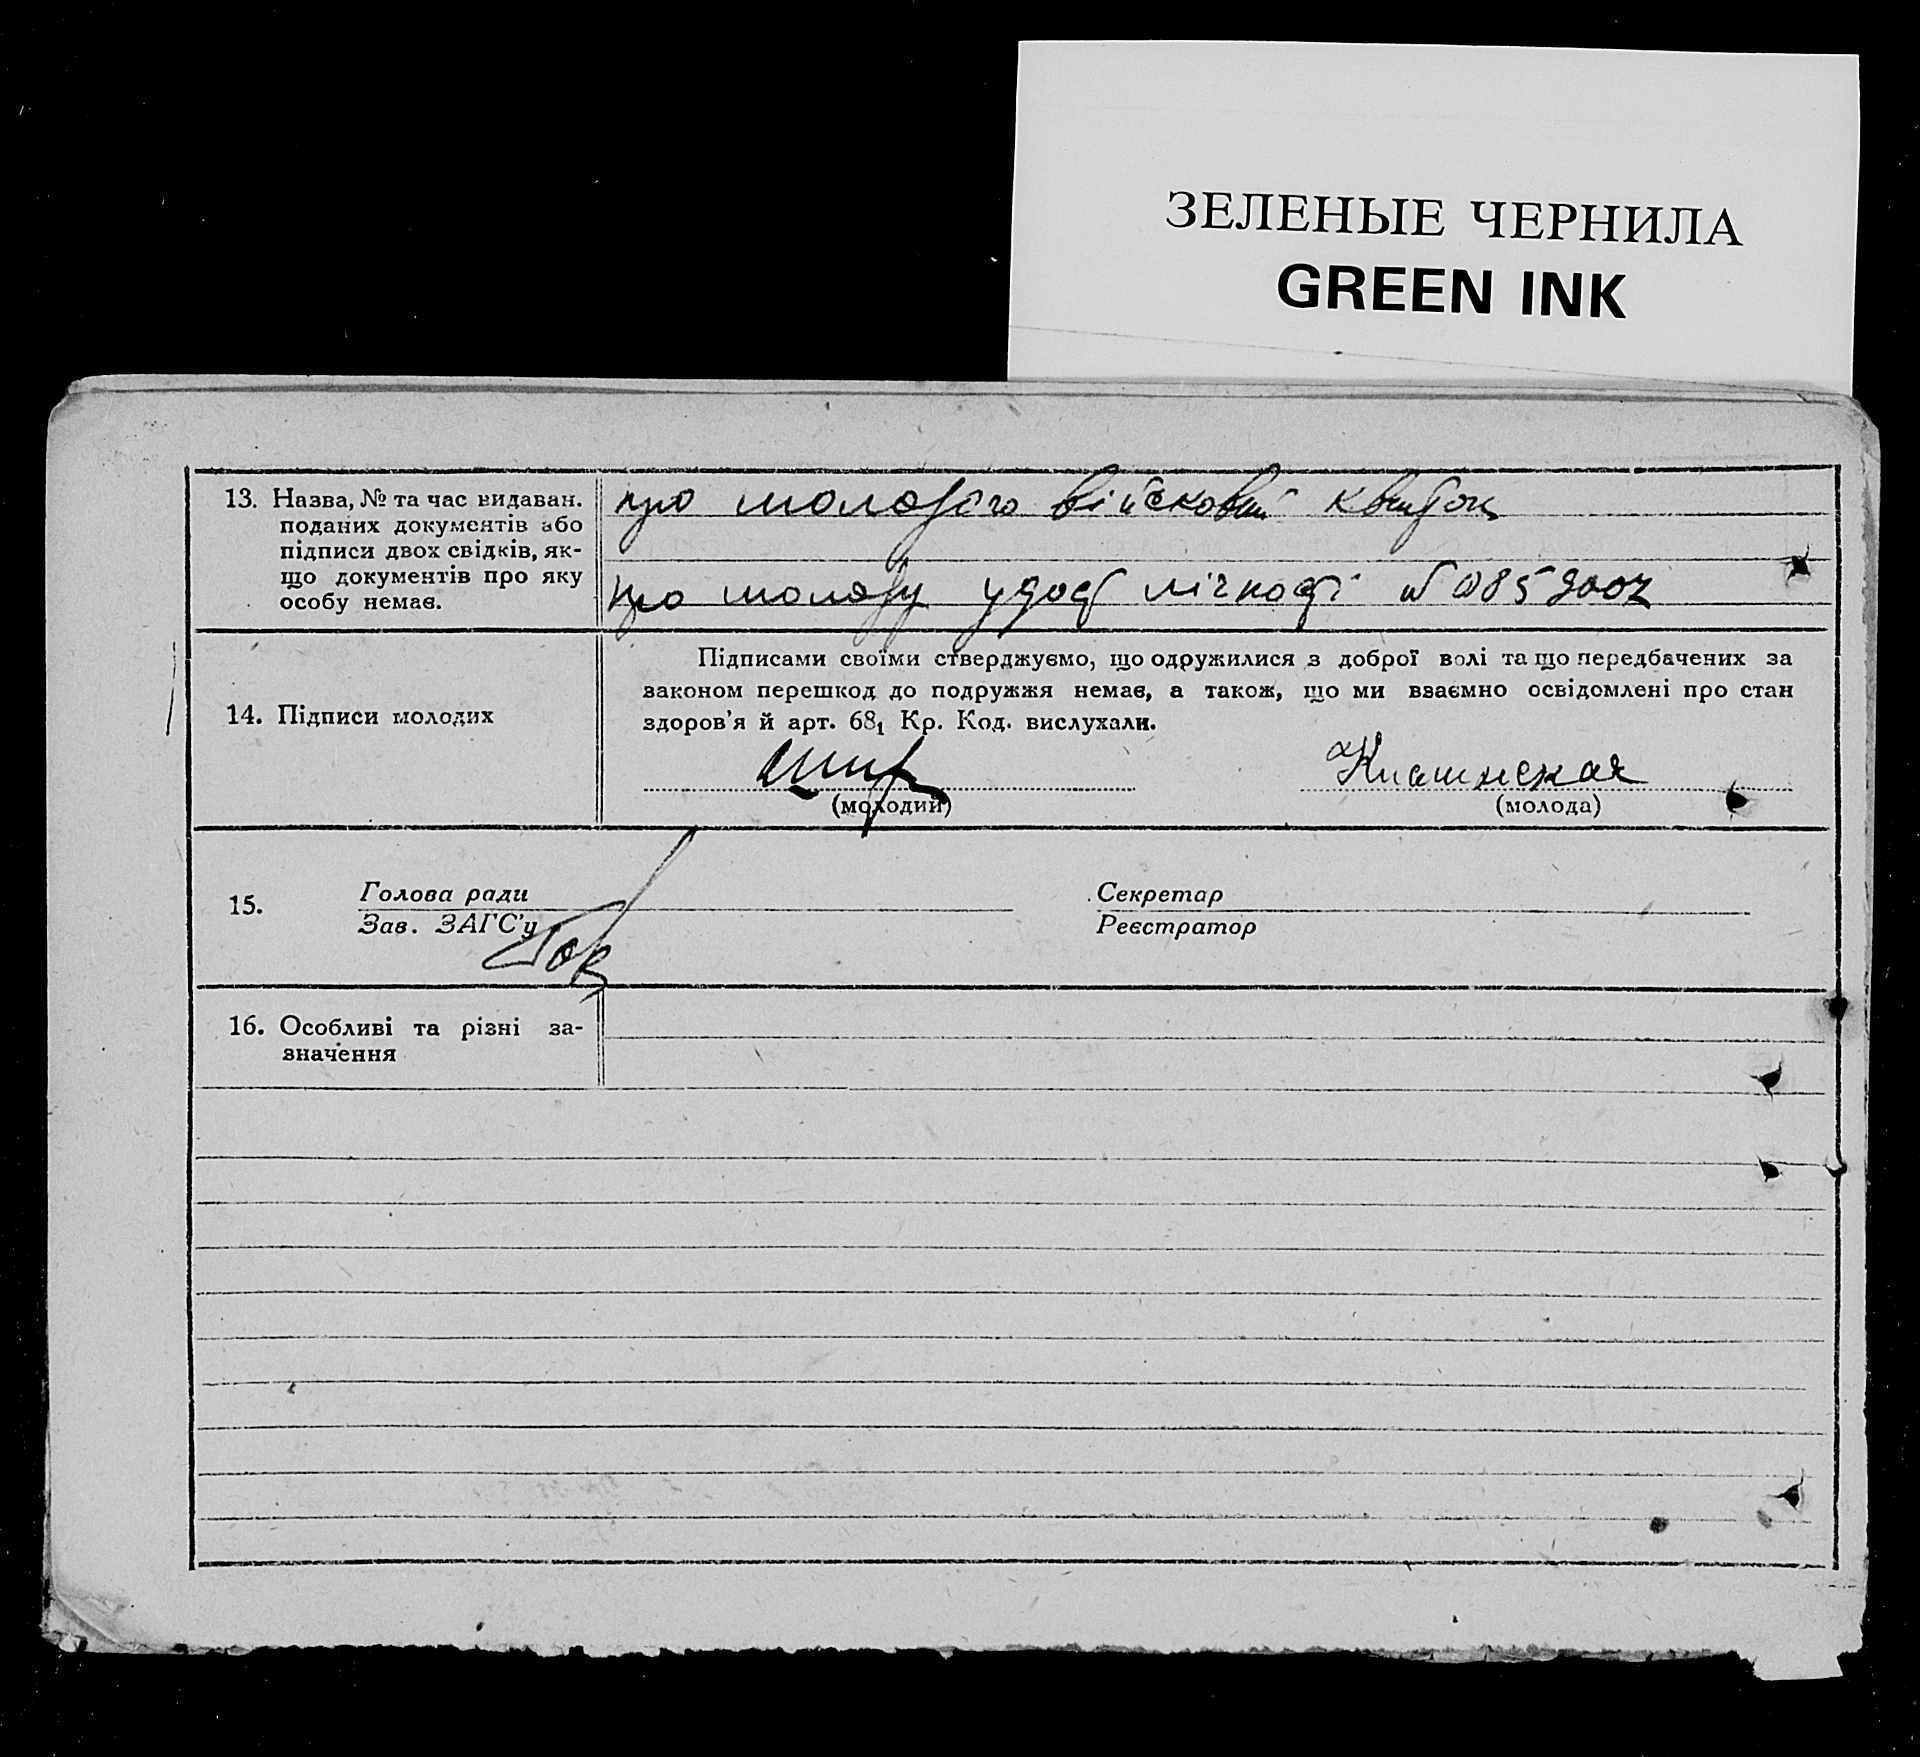 ЗЕЛЕНЫЕ ЧЕРНИЛА
GREEN INK
13. Назва, № та час видаван.
поданих документів або
підписи двох свідків, як-
що документів про яку
особу немає.
про молодого військовий квиток
про молоду удост лічності №
14. Підписи молодих
Підписами своїми стверджуємо, що одружилися з доброї волі та що передбачених за
законом перешкод до подружжя немає, а також, що ми взаємно освідомлені про стан
здоров'я й арт. 68₁ Кр. Код. вислухали.
(молодий)
(молода)
15.
Голова ради
Зав. ЗАГС'у
Секретар
Реєстратор
16. Особливі та різні за-
значення